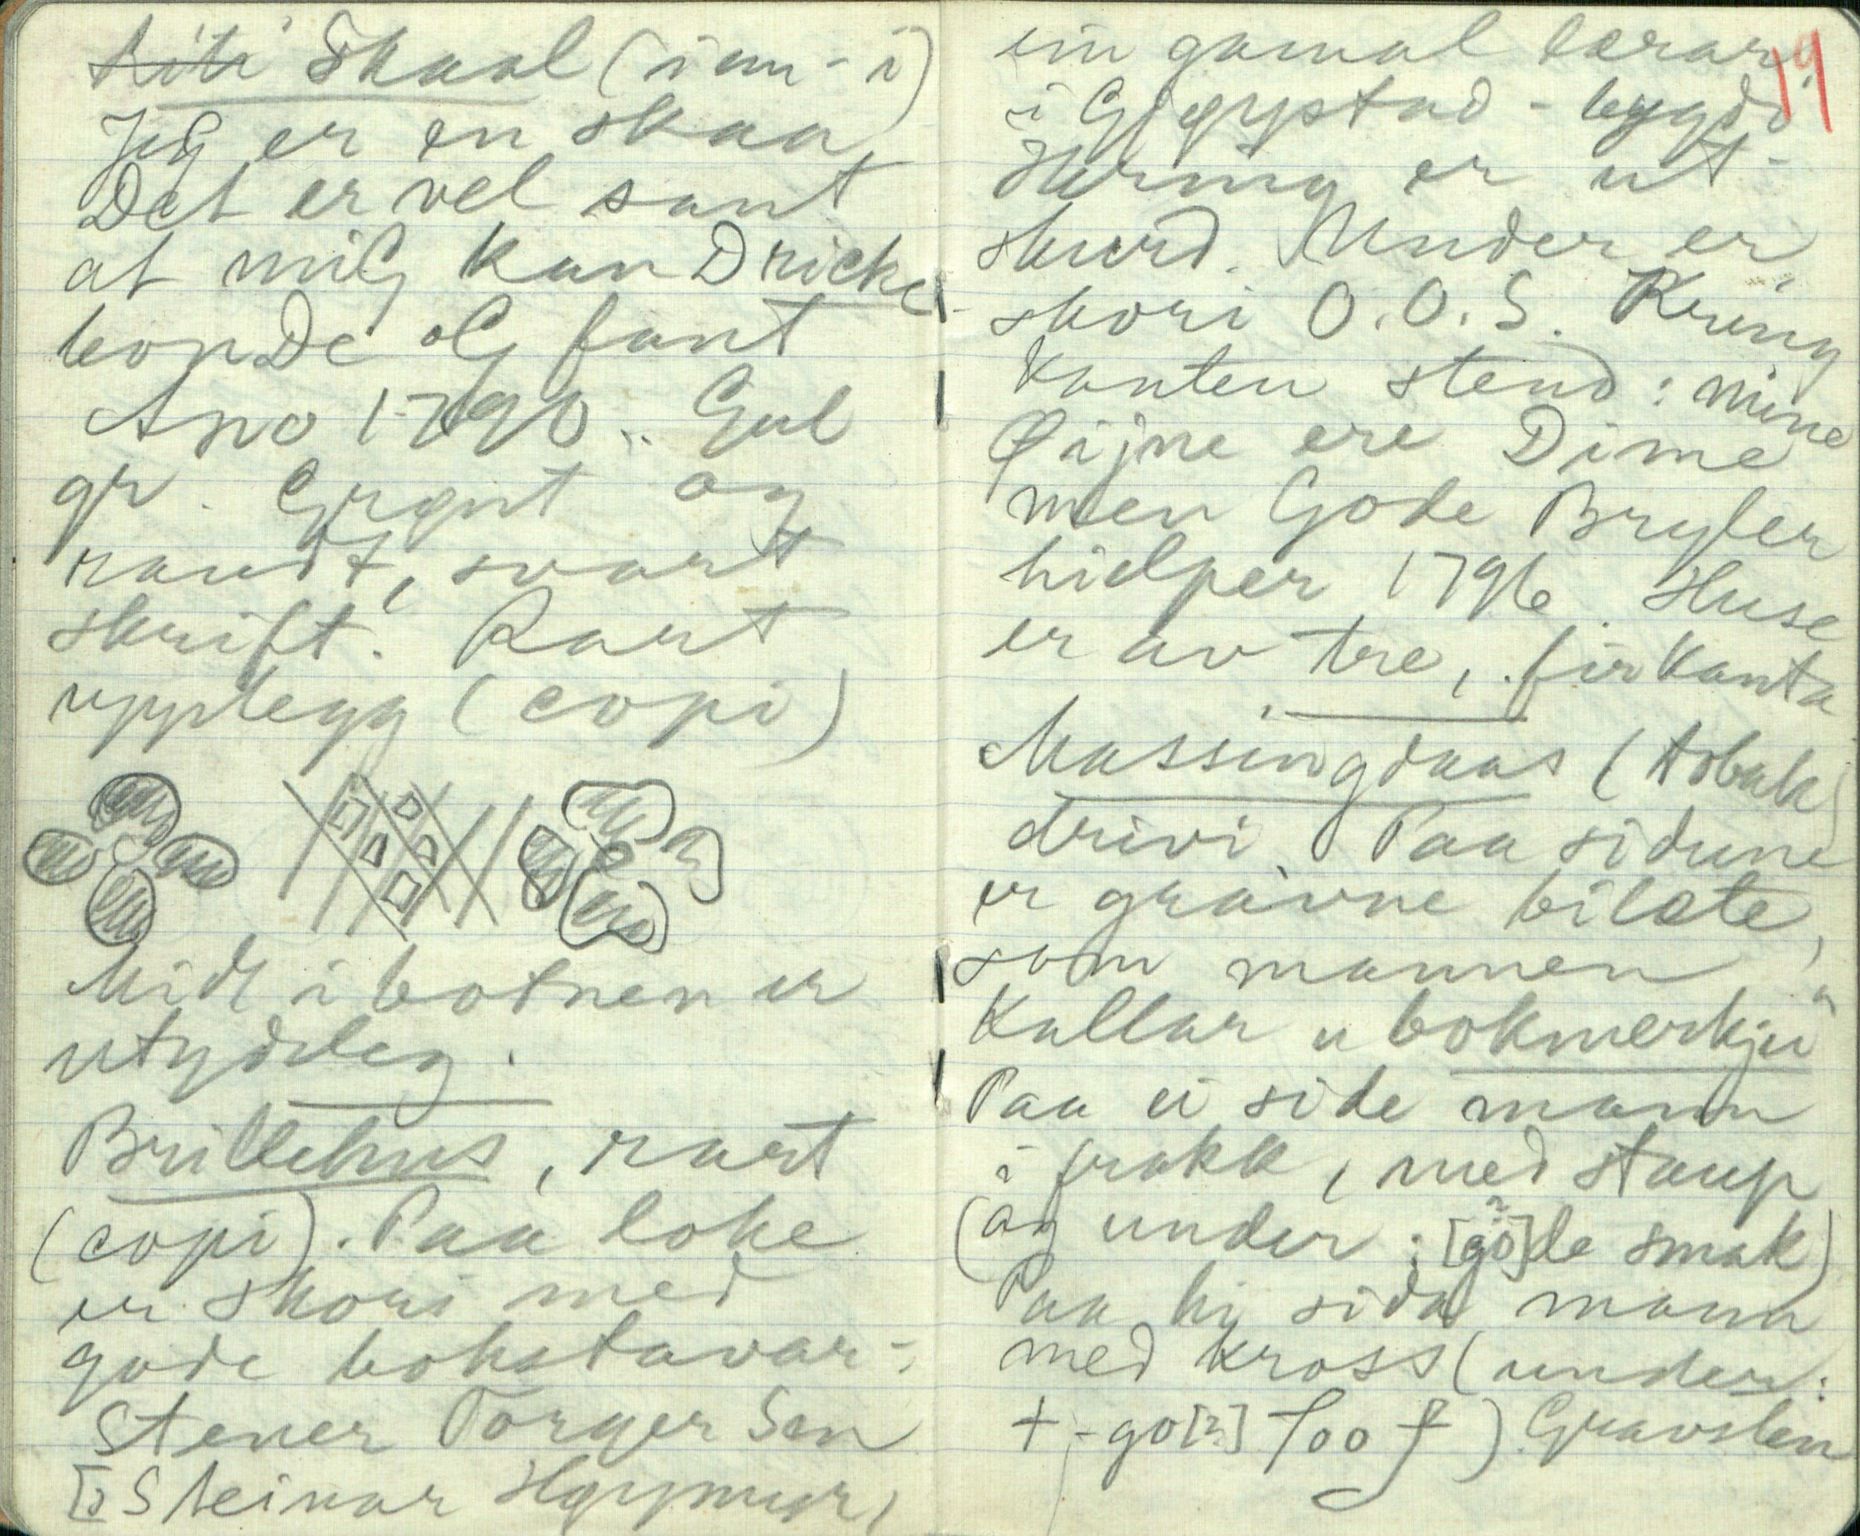 Skaal (i em - i)
JeG er en skaa
Det er vel sant
at miG kan Dricke
bonDe oG fant
Ano 1790. Gul
gr. Grønt og
raudt, svart
skrift. Rart
upplegg (copi)
Midt i botnen er
utydeleg.
Brillehus, rart
(copi). Paa loke
er skori med
gode bokstavar:
Stener Torger Sen
[ɔ: Steinar Høymyr,
ein gamal lærar
i - bygdi
Kring er ut-
skurd. Under er
skori O.O.S. Kring
Kanten stend: mine
Øijne ere Dime
men Gode Bryler
hielper 1796. Huse
er av tre, firkanta
Massingdaas (tobak)
drivi. Paa sidune
er gravne bilæte,
som mannen
Kallar "bokmerkje"
Paa ei side mann
i frakk, med staup
(og under: [gö]de smak)
Paa hi sida mann
med kross (under:
+ - go[?] foo f) Gravsten
19